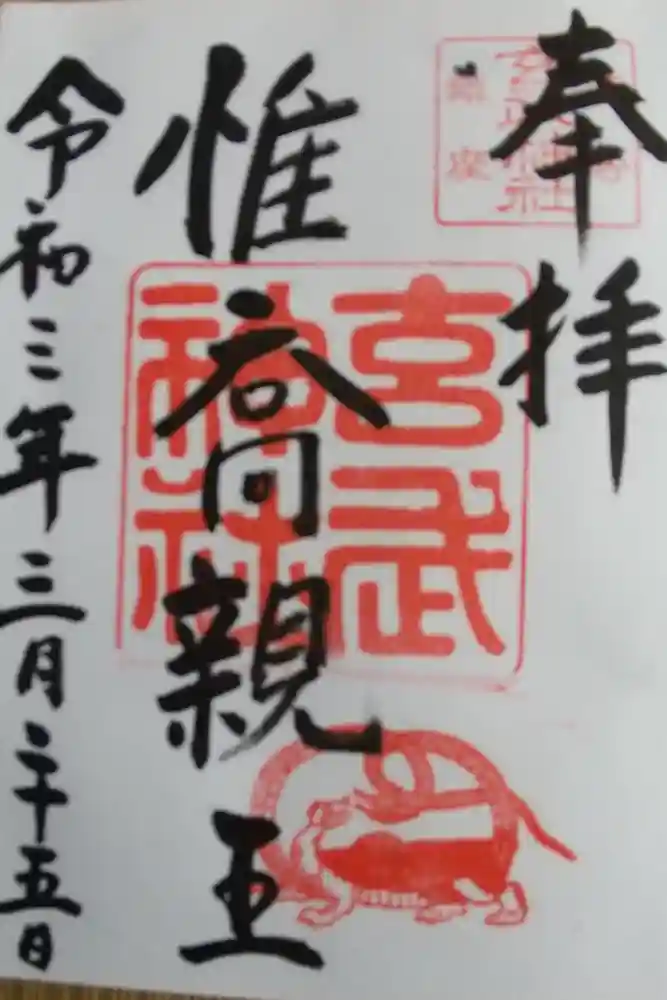 奉拝
玄武神社
玄武神社
惟喬親王
令和三年三月二十五日